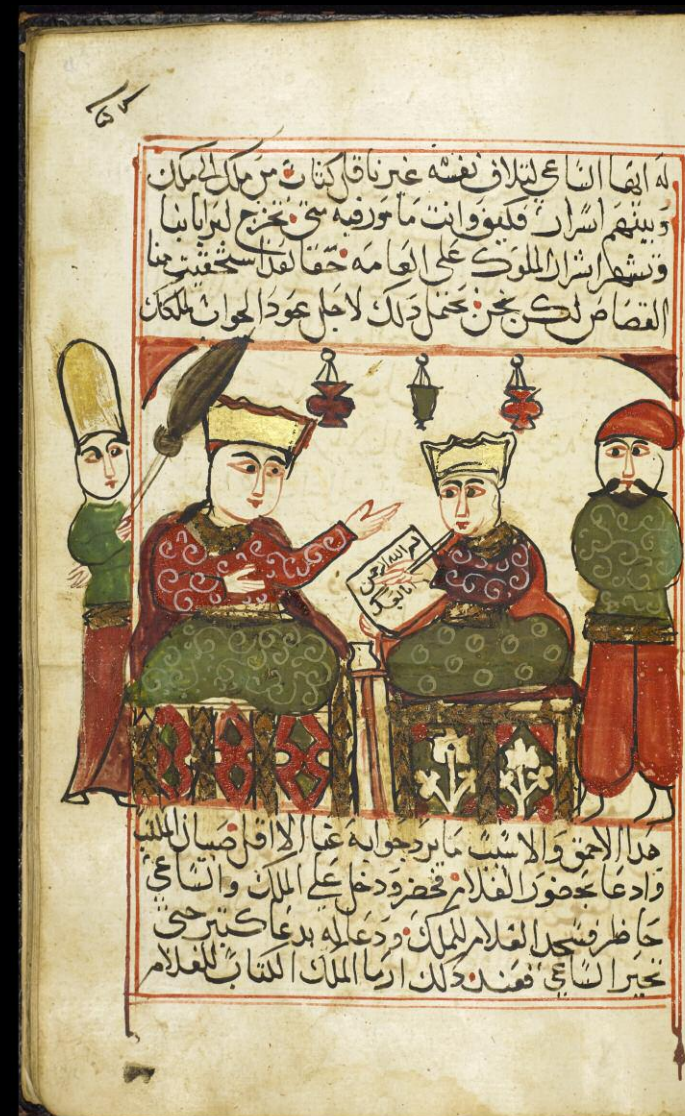 له ايها الساعي لتلاف نفسه غير ناقل كتاب من ملك الي ملك
وبينهم اسرار فكيف وانت ما متي تخرج
وتشهر اسرار الملوك على العامه حقا لقد استحقيت منا
القصاص لكن نحن نحتمل دلك لاجل عود الجواب لملكك
بسم الله الرحمن
هدا الاحمق والا ما يرد جوابه عنا الا اقل صبيان
وادعا بحضور الغلام فحضر ودخل علي الملك والساعي
حاظر فسجد الغلام للملك ودعا له بدعا كتير حتي
تحير الساعي فعند دلك ارما الملك الكتاب للغلام